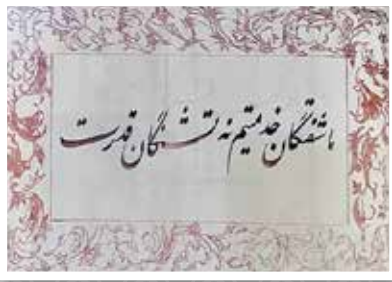 ما شیفتگان خدمتیم نه تشنگان قدرت